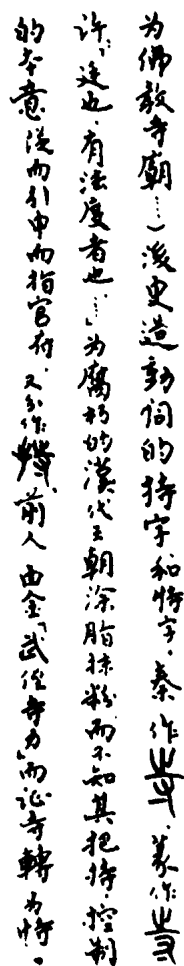 为佛教寺廟……)後更造動詞的持字和恃字。秦作寺、篆作寺
許:「廷也。有法度者也……」为腐朽的漢代王朝涂脂抹粉而不知其把持、控制
的本意從而引申而指官府。又分作恃。前人由金「武侄寺力」而证寺轉为恃。